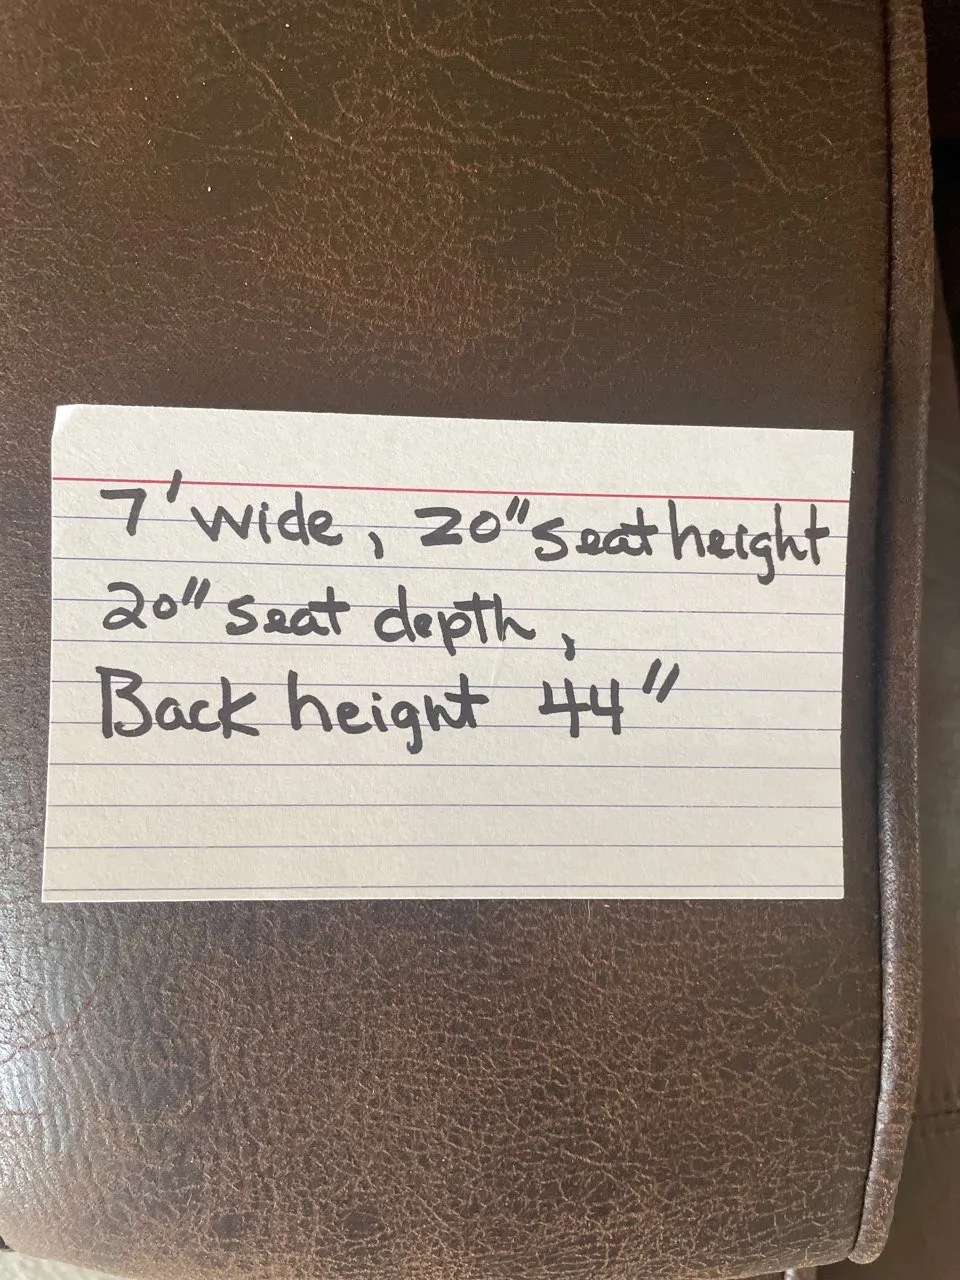 7' wide, 20" seat height
20" seat depth,
Back height 44"